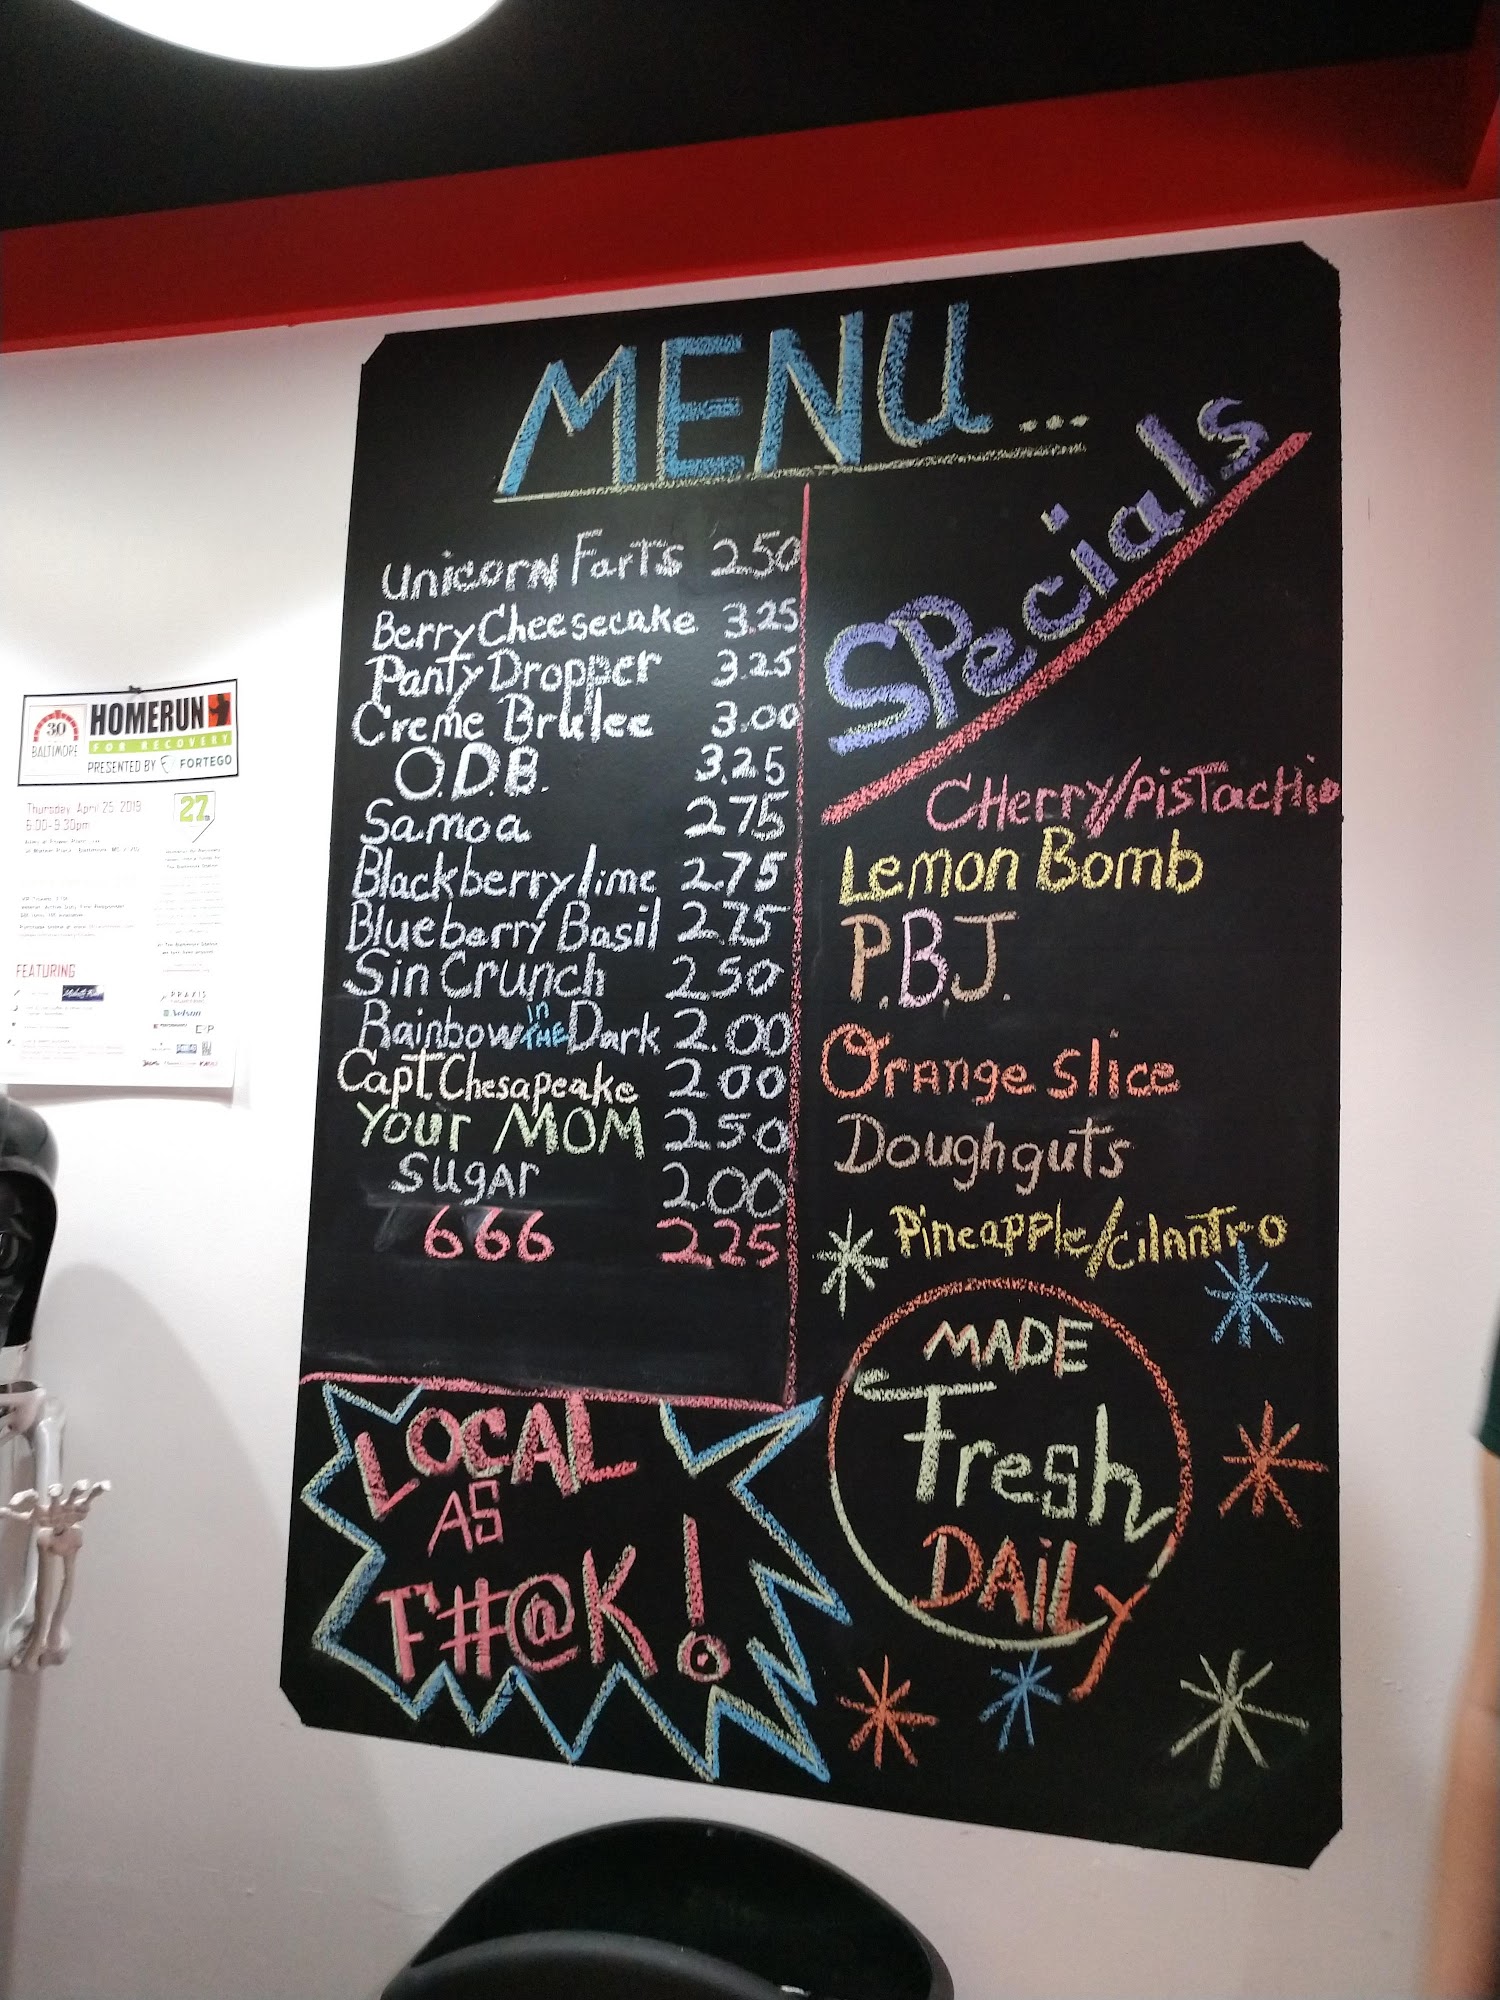 MENU...
Unicorn Farts 2.50
Berry Cheesecake 3.25
Panty Dropper 3.25
Creme Brulee 3.00
O.D.B. 3.25
Samoa 2.75
Blackberry lime 2.75
Blueberry Basil 2.75
Sin Crunch 2.50
Rainbow in THE Dark 2.00
Capt. Chesapeake 2.00
Your MOM 2.50
Sugar 2.00
666 2.25
Specials
CHerry/PisTacHio
Lemon Bomb
P.B.J.
Orange Slice
Doughguts
Pineapple/Cilantro
LOCAL
AS
F#@K!
MADE
Fresh
DAILY
30
BALTIMORE
HOMERUN
FOR RECOVERY
PRESENTED BY FORTEGO
Thursday, April 25, 2019
6:00-9:30pm
27
FEATURING
PRAXIS
Nelson